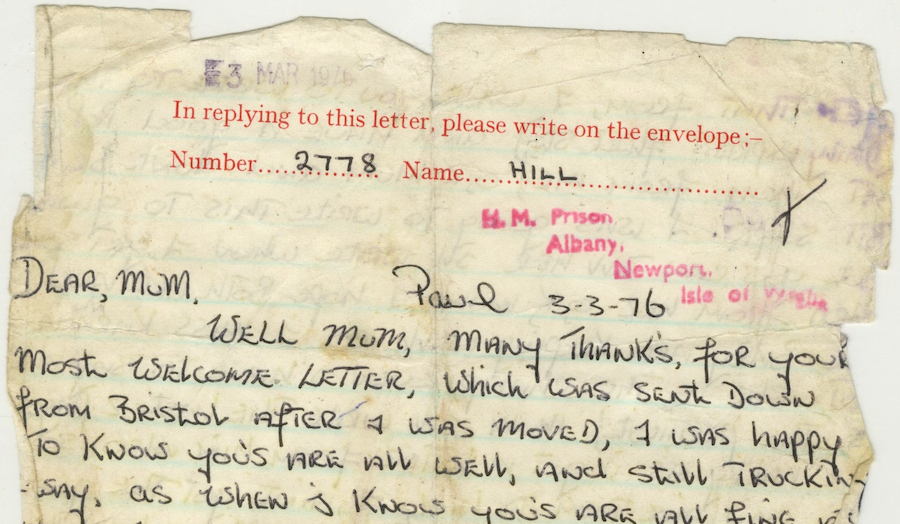 3 MAR 1976
In replying to this letter, please write on the envelope;–
Number......2778 Name......HILL..............................
H. M. Prison,
Albany,
Newport,
Isle of Wight
DEAR, MUM. Paul 3-3-76
WELL MUM, MANY THANKS, FOR YOUR
MOST WELCOME LETTER, WHICH WAS SENT DOWN
FROM BRISTOL AFTER I WAS MOVED, I WAS HAPPY
TO KNOW YOU'S ARE ALL WELL, AND STILL TRUCKIN
WAY, AS WHEN I KNOW YOU'S ARE ALL FINE